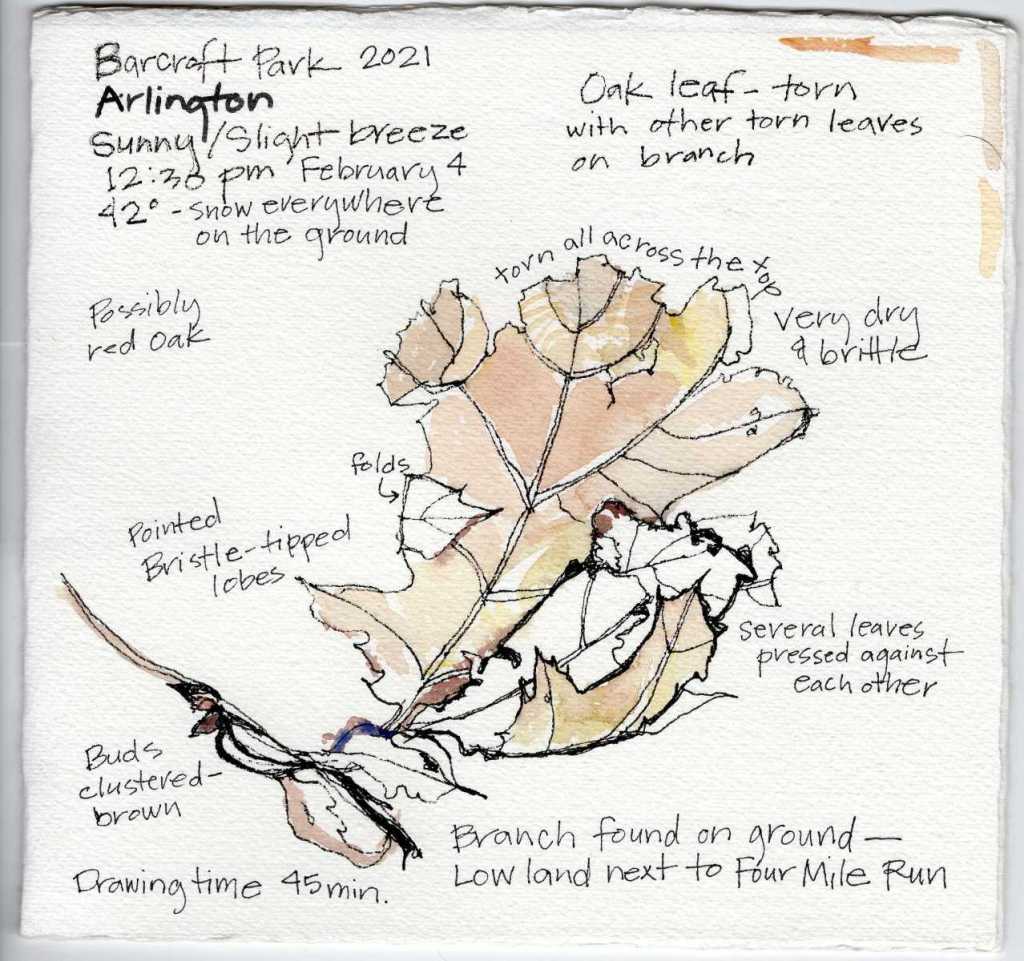 Barcroft Park 2021
Arlington
Sunny/Slight breeze
12:30 pm February 4
42° - snow everywhere
on the ground
Oak leaf - torn
with other torn leaves
on branch
torn all across the top
Possibly
red oak
very dry
& brittle
folds
Pointed
Bristle-tipped
lobes
several leaves
pressed against
each other
Buds
clustered-
brown
Branch found on ground—
Low land next to Four Mile Run
Drawing time 45 min.